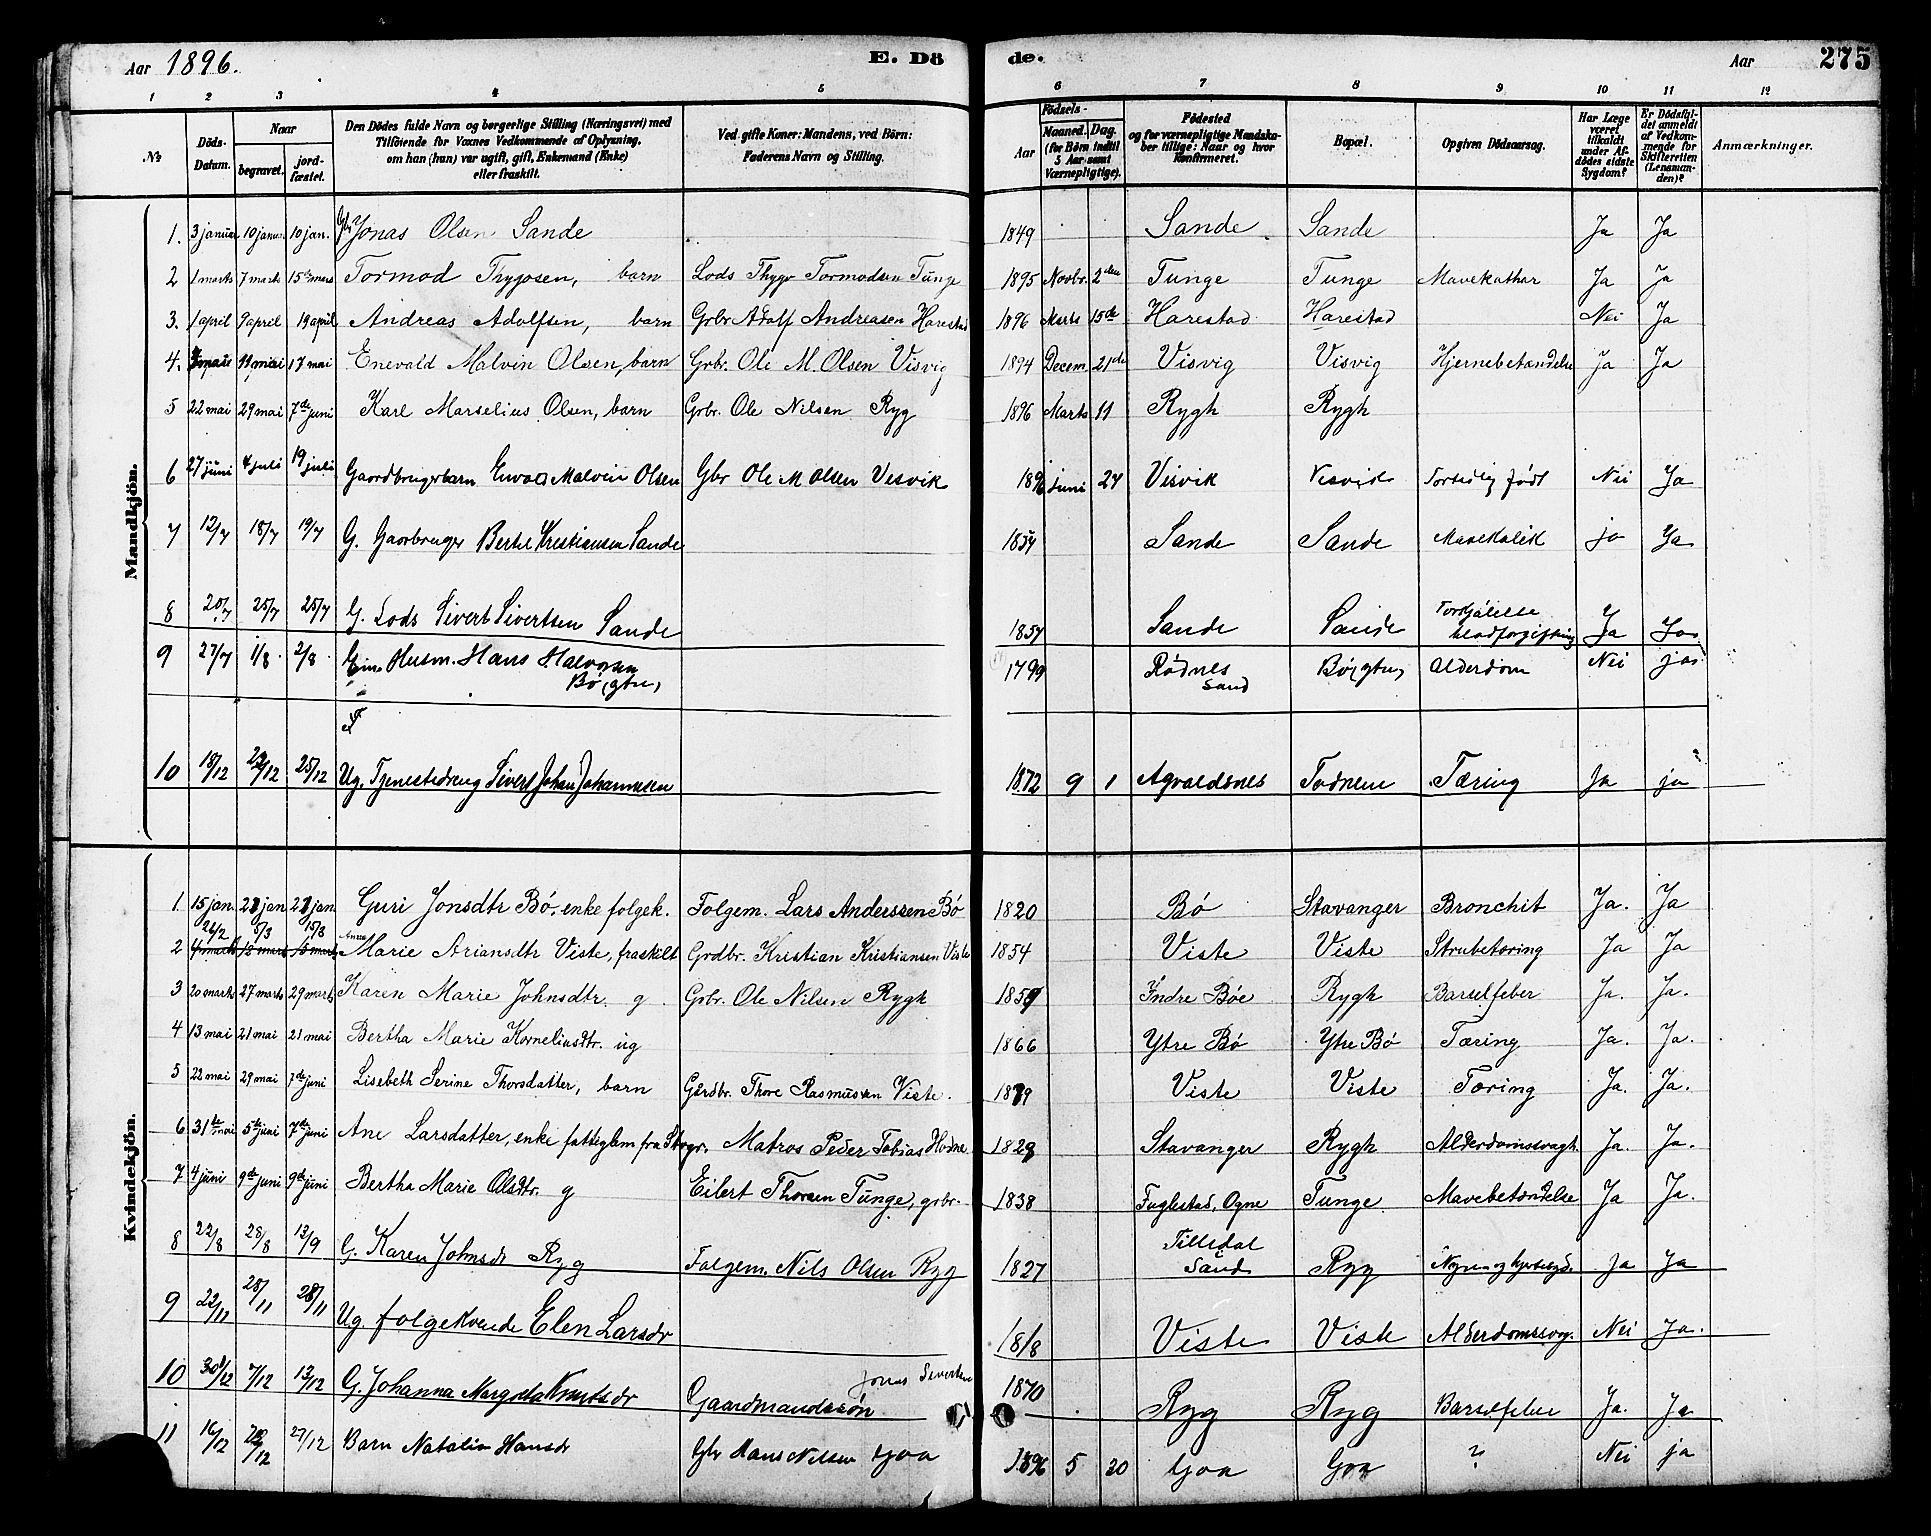 Aar 1896. E. Dö de. Aar 275
1 2 3 4 5 6 7 8 9 10 11 12
No Döds-Datum. Naar begravet. jord-fæstet. Den Dödes fulde Navn og borgerlige Stilling (Næringsvei) med Tilföiende for Voxnes Vedkommende af Oplysning, om han (hun) var ugift, gift, Enkemand (Enke) eller fraskilt. Ved gifte Koner: Mandens, ved Börn: Faderens Navn og Stilling. Födsels- Aar Maaned. Dag. (for Börn indtil 5 Aar samt Værnepligtige). Födested og for værnepligtige Mandskaber tillige: Naar og hvor Konfirmeret. Bopæl. Opgiven Dödsaarsag. Har Læge været tilkaldt under Afdödes sidste Sygdom? Er Dödsfaldet anmeldt af Vedkommende for Skifteretten (Lensmanden)? Anmærkninger.
Mandkjön.
1. 3 januar 10 janu. 10 jan. Gbr Jonas Olsen Sande 1849 Sande Sande Ja Ja
2 1 marts 7 marts 15de mars Tormod Trygosen, barn Lods Thygo Tormodsen Tunge 1895 Novbr. 2den Tunge Tunge Mavekathar Ja Ja
3. 1 april 9 april 19 april Andreas Adolfsen, barn Grbr. Adolf Andreasen Harestad 1896 Marts 15de Harestad Harestad Nei Ja
4. mai 11 mai 17 mai Enevald Malvin Olsen, barn Grbr. Ole M. Olsen Visvig 1894 Decem. 21de Visvig Visvig Hjernebetændelse Ja Ja
5 22 mai 29 mai 7de juni Karl Marselius Olsen, barn Grbr. Ole Nilsen Ryg 1896 Marts 11 Rygh Rygh
6 27 juni 4 juli 19 juli Gaardbrugerbarn Envald Malvin Olsen Gbr Ole M Olsen Vesvik 1896 juni 27 Visvik Visvik Fortidlig født Nei Ja
7 12/7 18/7 19/7 G. Gaarbruger Bertel Kristiansen Sande 1854 Sande Sande Mavekolik ja Ja
8 20/7 25/7 25/7 G. Lods Sivert Sivertsen Sande 1857 Sande Sande blodforgiftning Ja Ja
9 27/7 1/8. 2/8. Em. Husm. Hans Halvorsen Bø, gtn, 1799 Rødnes Sand Bø, gtn, Alderdom Nei ja
10 18/12 22/12 25/12 Ug. Tjenestedreng Sivert Johan Johannesen 1872 9 1 Agvaldsnes Todnem Tæring Ja ja
Kvindekjön.
1 15 jan. 21 jan 21 jan Guri Jonsdtr Bö, enke folgek. Folgem. Lars Anderssen Bö 1820 Bö Stavanger Bronchit Ja. Ja
26/2 5/3 15/3 Anna
2 4 marts 12 mars 15 mars Marie Ariansdtr Viste, fraskilt Grdbr. Kristian Kristiansen Viste 1854 Viste Viste Strubetæring Ja Ja
3 20 marts 27 marts 29 marts Karen Marie Johnsdtr. g Grbr. Ole Nilsen Rygh 1859 Indre Böe Rygh Barselfeber Ja. Ja.
4 13 mai 21 mai 21 mai Bertha Marie Korneliusdtr. ug 1866 Ytre Bö Ytre Bö Tæring Ja. Ja.
5 22 mai 29 mai 7de juni Lisebeth Serine Thorsdatter, barn Gårdbr. Thore Rasmussen Viste. 1889 Viste Viste Tæring Ja. Ja.
6 31te mai 5te juni 7de juni Ane Larsdatter, enke fattiglem fra Stvgr. Matros Peder Tobias Hodne 1828 Stavanger Rygh Alderdomssvagh. Ja. Ja.
7 4 juni 9de juni 9de juni Bertha Marie Olsdtr. g Eilert Thorsen Tunge, grbr. 1838 Fuglestad, Ogne Tunge Mavebetændelse Ja Ja.
8 22/8 28/8 13/9 G. Karen Johnsdr Ryg Folgem. Nils Olsen Ryg 1827 Tilledal Sand Ryg Ja Ja
9 22/11 28/11 28/11 Ug folgekvende Elen Larsdr 1818 Viste Viste Alderdomssvag. Nei Ja.
10 30/12 7/12 13/12 G. Johanna Margreta Knutsdr Gaardmandssøn Jonas Sivertsen 1870 Ryg Ryg Barselfeber Ja. Ja
11 16/12 22/12 27/12 Barn Natalia Hansdr Gbr Hans Nilsen Goa 1896 5 20 Goa Goa ? Nei ja